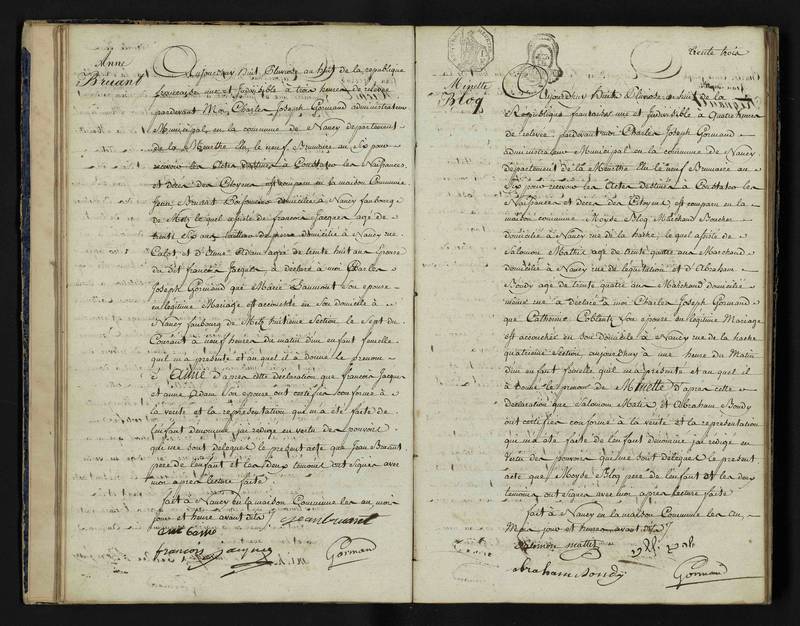 Anne
Bruant
Aujourdhuy huit Pluviose an huit de la republique
francaise une et indivisible à trois heures de relevée
pardevant Moi Charles Joseph Gormand administrateur
Municipal en la commune de Nancy departement
de la Meurthe Elu le neuf Brumaire an Six pour
recevoir les Actes destinés à Constater les Naissances
et décès des Citoyens est comparu en la maison Commune
Jean Bruant domicilié à Nancy faubourg
de Metz lequel assisté de francois Jacques agé de
domicilié à Nancy rue
Callot et d'Anne Adam agée de trente huit ans Epouse
du dit francois Jacques a déclaré à moi Charles
Joseph Gormand que Marie Laumont Son epouse
en legitime Mariage est accouchée en Son domicile à
Nancy faubourg de Metz huitieme Section le Sept du
Courant à neuf heures du matin d'un Enfant femelle
quil m'a présenté et au quel il a donné le prenom
d'Anne d'apres cette declaration que francois Jacques
et anne Adam Son epouse ont certifiée conforme à
la verité et la representation qui m'a été faite de
l'enfant denommé jai redigé en vertu des pouvoirs
qui me sont delegués le présent acte que Jean Bruant
pere de l'enfant et les deux temoins ont Signés avec
moi apres lecture faite
fait à Nancy en la maison Commune les an, mois
jour et heure avant dits
jean bruant
francois jacques
Gormand
trente trois
Minette
Bloq
Aujourdhuy huite Pluviose an huit de la
République francaise une et indivisible à quatre heures
de relevée pardevant moi Charles Joseph Gormand
administrateur Municipal en la commune de Nancy
departement de la Meurthe Elu le neuf Brumaire an
Six pour recevoir les Actes destinés à Constater les
Naissances et décès des Citoyens est comparu en la
maison commune Moyse Bloq Marchand Boucher
domicilié à Nancy rue de la hache lequel assisté de
Salomon Mathis agé de trente quatre ans Marchand
domicilié à Nancy rue de l'équitation et d'Abraham
Bondy agé de trente quatre ans Marchand domicilié
même rue a déclaré à moi Charles Joseph Gormand
que Catherine Coblentz Son epouse en legitime Mariage
est accouchée en Son domicile à Nancy rue de la hache
quatrieme Section, aujourdhuy à une heure du Matin
d'un enfant femelle quil m'a présenté et au quel il
à donné le prenom de Minette d'apres cette
declaration que Salomon Matis et Abraham Bondy
ont certifiée conforme à la verité et la representation
qui m'a été faite de l'enfant denommé jai redigé en
Vertu des pouvoirs qui me sont delegués le présent
acte que Moyse Bloq pere de l'enfant et les deux
temoins ont Signés avec moi apres lecture faite
fait à Nancy en la maison Commune les an,
Mois jour et heures avant dits
Salomon mattis
abraham bondy
Gormand